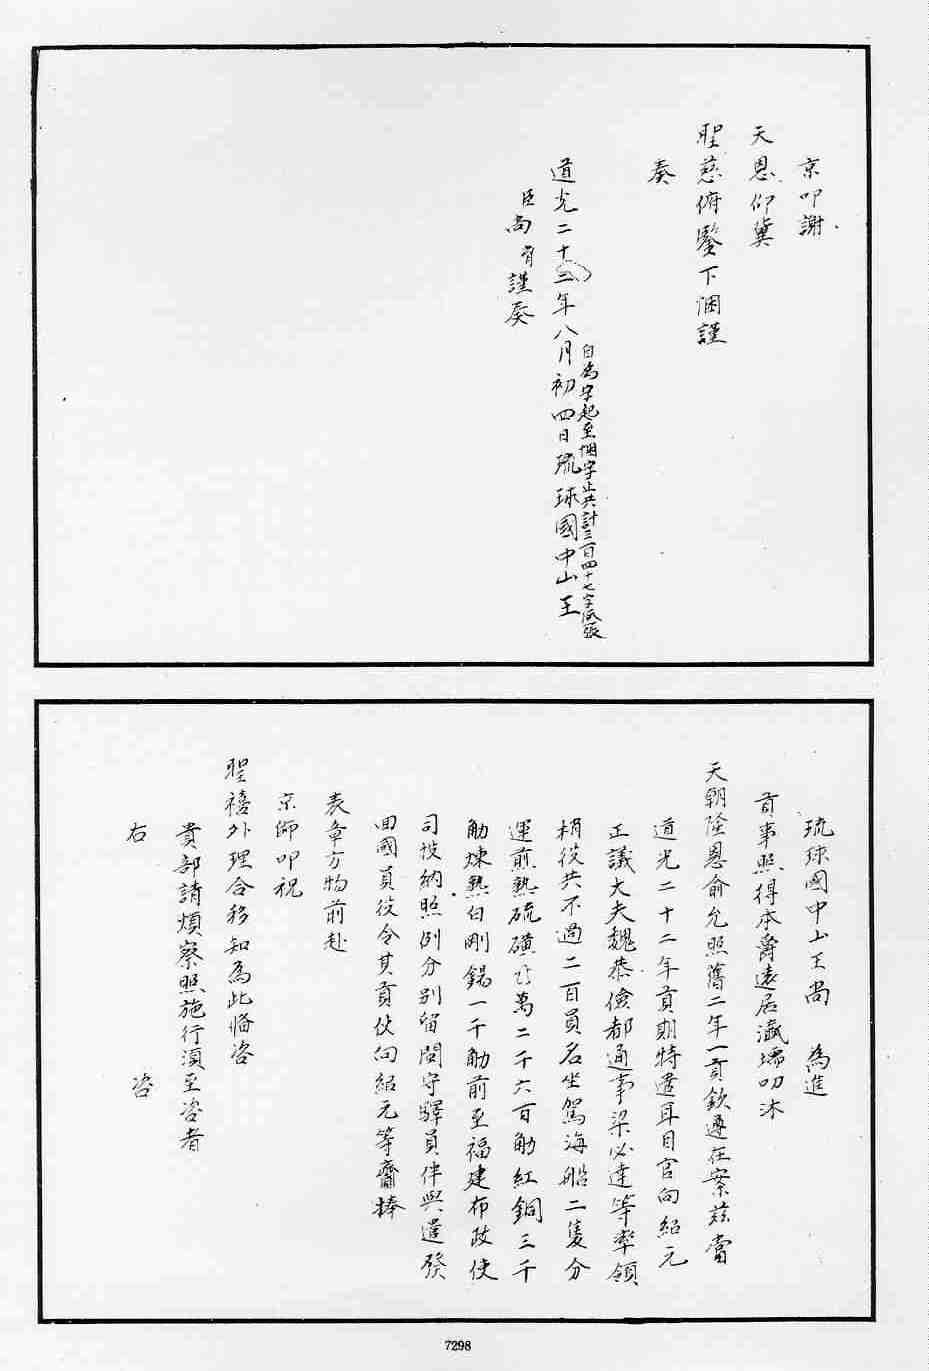 京叩謝
天恩仰冀
聖慈俯鑒下悃謹
奏
自為字起至悃字止共計三百四十七字紙一張
道光二十三年八月初四日琉球國中山王
臣尚育謹奏
琉球國中山王尚 為進
貢事照得本爵遠居瀛壖叨沐
天朝隆恩俞允照舊二年一貢欽遵在案茲當
道光二十二年貢期特遣耳目官向紹元
正議大夫魏恭儉都通事梁必達等率領
梢役共不過二百員名坐駕海船二隻分
運煎熟硫磺萬二千六百觔紅銅三千
觔煉熟白剛錫一千觔前至福建布政使
司投納照例分別留閩守驛員伴與遣發
回國員役令其貢使向紹元等齎捧
表章方物前赴
京師叩祝
聖禧外理合移知為此備咨
貴部請煩察照施行須至咨者
右 咨
7298